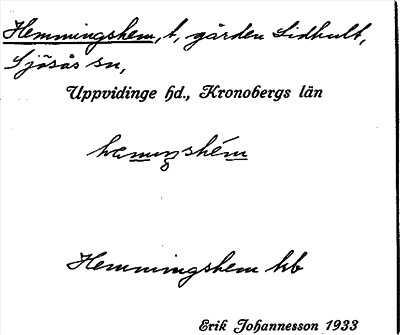 Hemmingshem, t, gården Lidhult,
Sjösås sn,
Uppvidinge hd., Kronobergs län
hemiŋshém
Hemmingshem hb
Erik Johannesson 1933